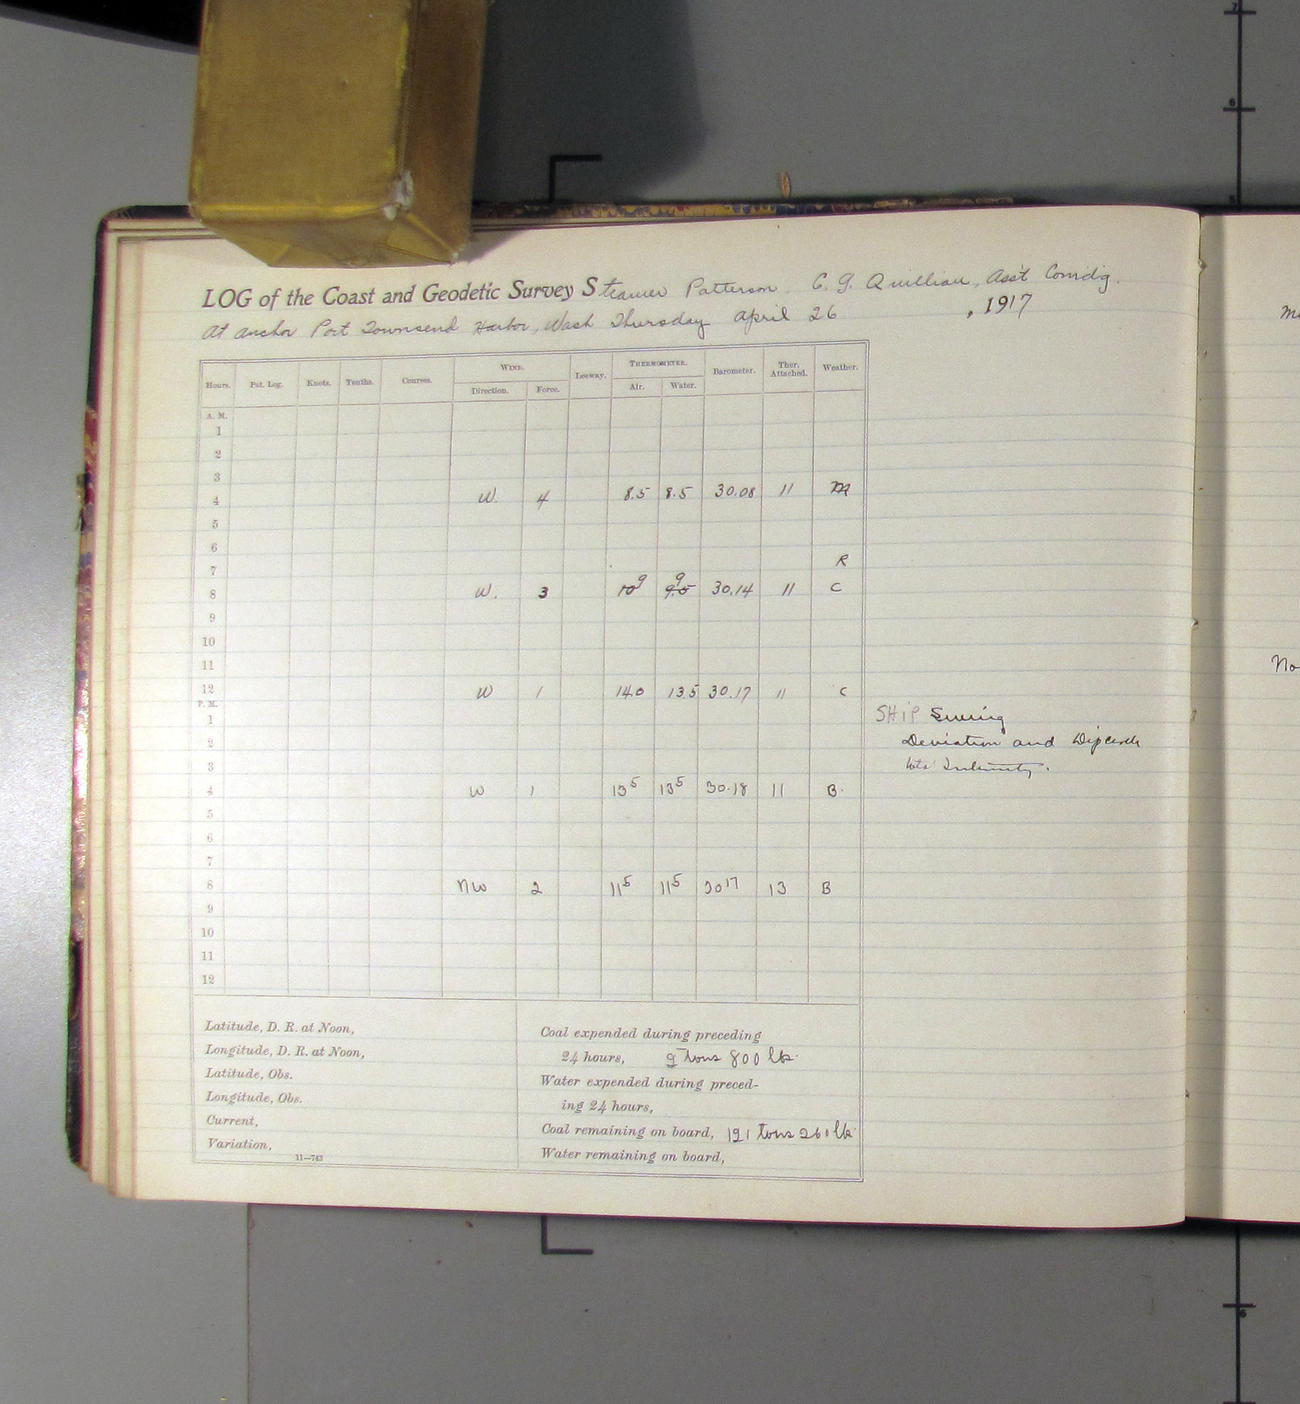 LOG of the Coast and Geodetic Survey Steamer Patterson. C. G. Quillian, Asst Comdg.
At anchor Port Townsend Harbor, Wash Thursday April 26, 1917
Hours. Pat. Log. Knots. Tenths. Courses. WIND. Leeway. THERMOMETER. Barometer. Ther. Attached. Weather.
Direction. Force. Air. Water.
A. M.
1
2
3
4 W. 4 8.5 8.5 30.08 11 M
5
6
7 R
8 W. 3 10 9 9.5 9 30.14 11 C
9
10
11
12 W 1 14.0 13.5 30.17 11 C
P. M.
1 SHIP Swung
2 Deviation and
3
4 W 1 13 5 13 5 30.18 11 B.
5
6
7
8 NW 2 11 5 11 5 30 17 13 B
9
10
11
12
Latitude, D. R. at Noon,
Longitude, D. R. at Noon,
Latitude, Obs.
Longitude, Obs.
Current,
Variation,
11—743
Coal expended during preceding
24 hours, 9 Tons 800 lbs.
Water expended during preced-
ing 24 hours,
Coal remaining on board, 191 Tons 261 lbs.
Water remaining on board,
No